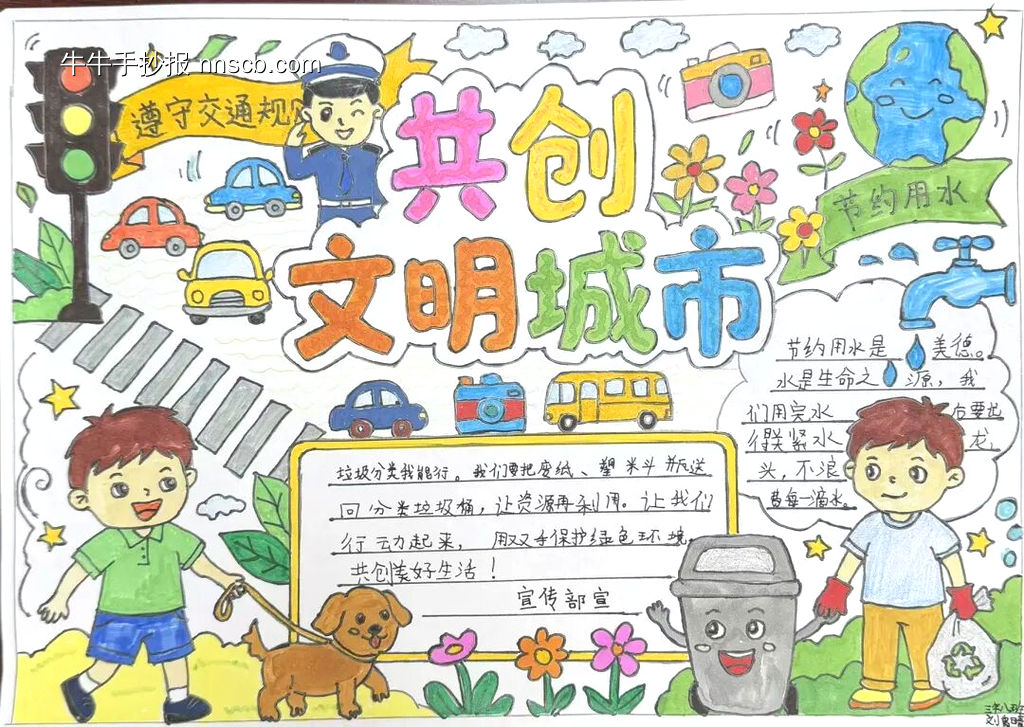 牛牛手抄报 nnscb.com
遵守交通规
共创
文明城市
节约用水
节约用水是 美德。
水是生命之 源，我
们用完水 后要
得关紧水 龙
头，不浪
费每一滴水。
垃圾分类我能行。我们要把废纸、塑 送
回分类垃圾桶，让资源再利用。让我们
行动起来，用双手保护绿色环境，
共创美好生活！
宣传部宣